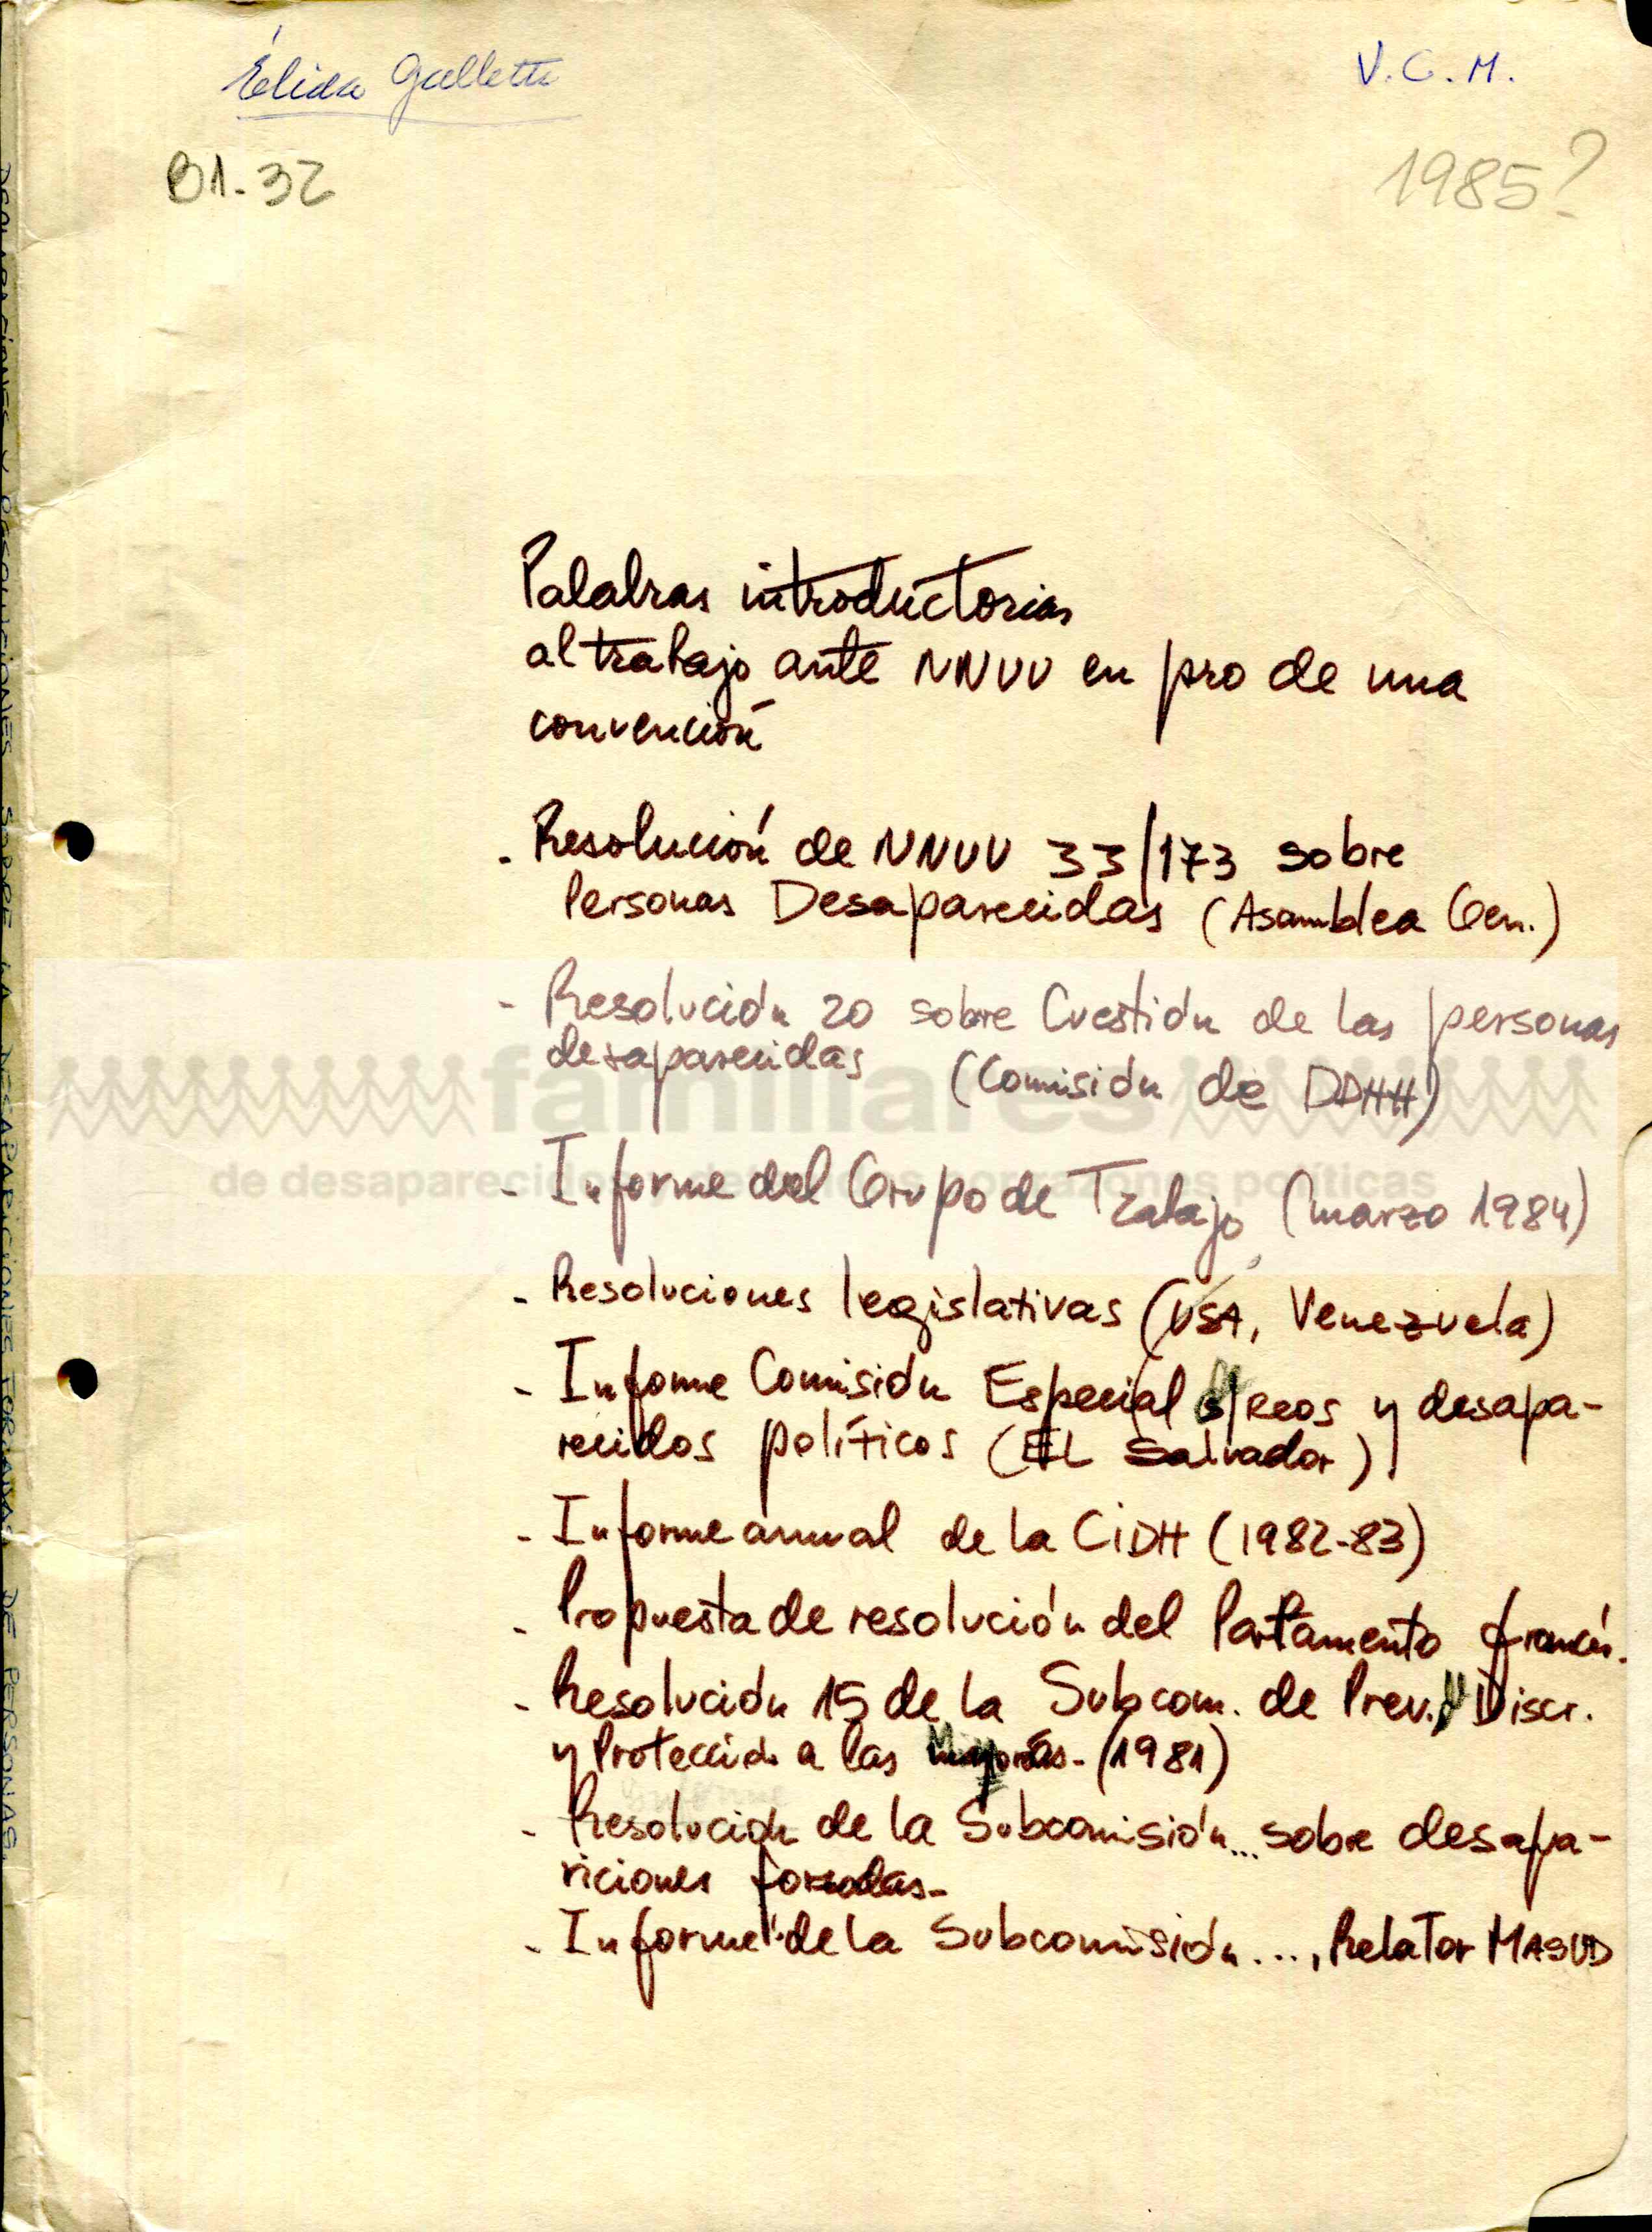 Élida Galletti
V.C.M.
B1-32
1985?
Palabras introductorias
al trabajo ante NNUU en pro de una
convención
- Resolución de NNUU 33/173 sobre
Personas Desaparecidas (Asamblea Gen.)
- Resolución 20 sobre Cuestión de las personas
desaparecidas (Comisión de DDHH)
familiares
de desaparecidos y detenidos por razones políticas
- Informe del Grupo de Trabajo (marzo 1984)
- Resoluciones legislativas (USA, Venezuela)
- Informe Comisión Especial s/ Reos y desapa-
recidos políticos (EL Salvador)
- Informe anual de la CIDH (1982-83)
- Propuesta de resolución del Parlamento francés.
- Resolución 15 de la Subcom. de Prev. Discr.
y Protección a las Minorías - (1981)
informe
- Resolución de la Subcomisión... sobre desapa-
riciones forzadas-
- Informe de la Subcomisión ..., Relator MASUD
DECLARACIONES Y RESOLUCIONES SOBRE LA DESAPARICIONES FORZADAS DE PERSONAS